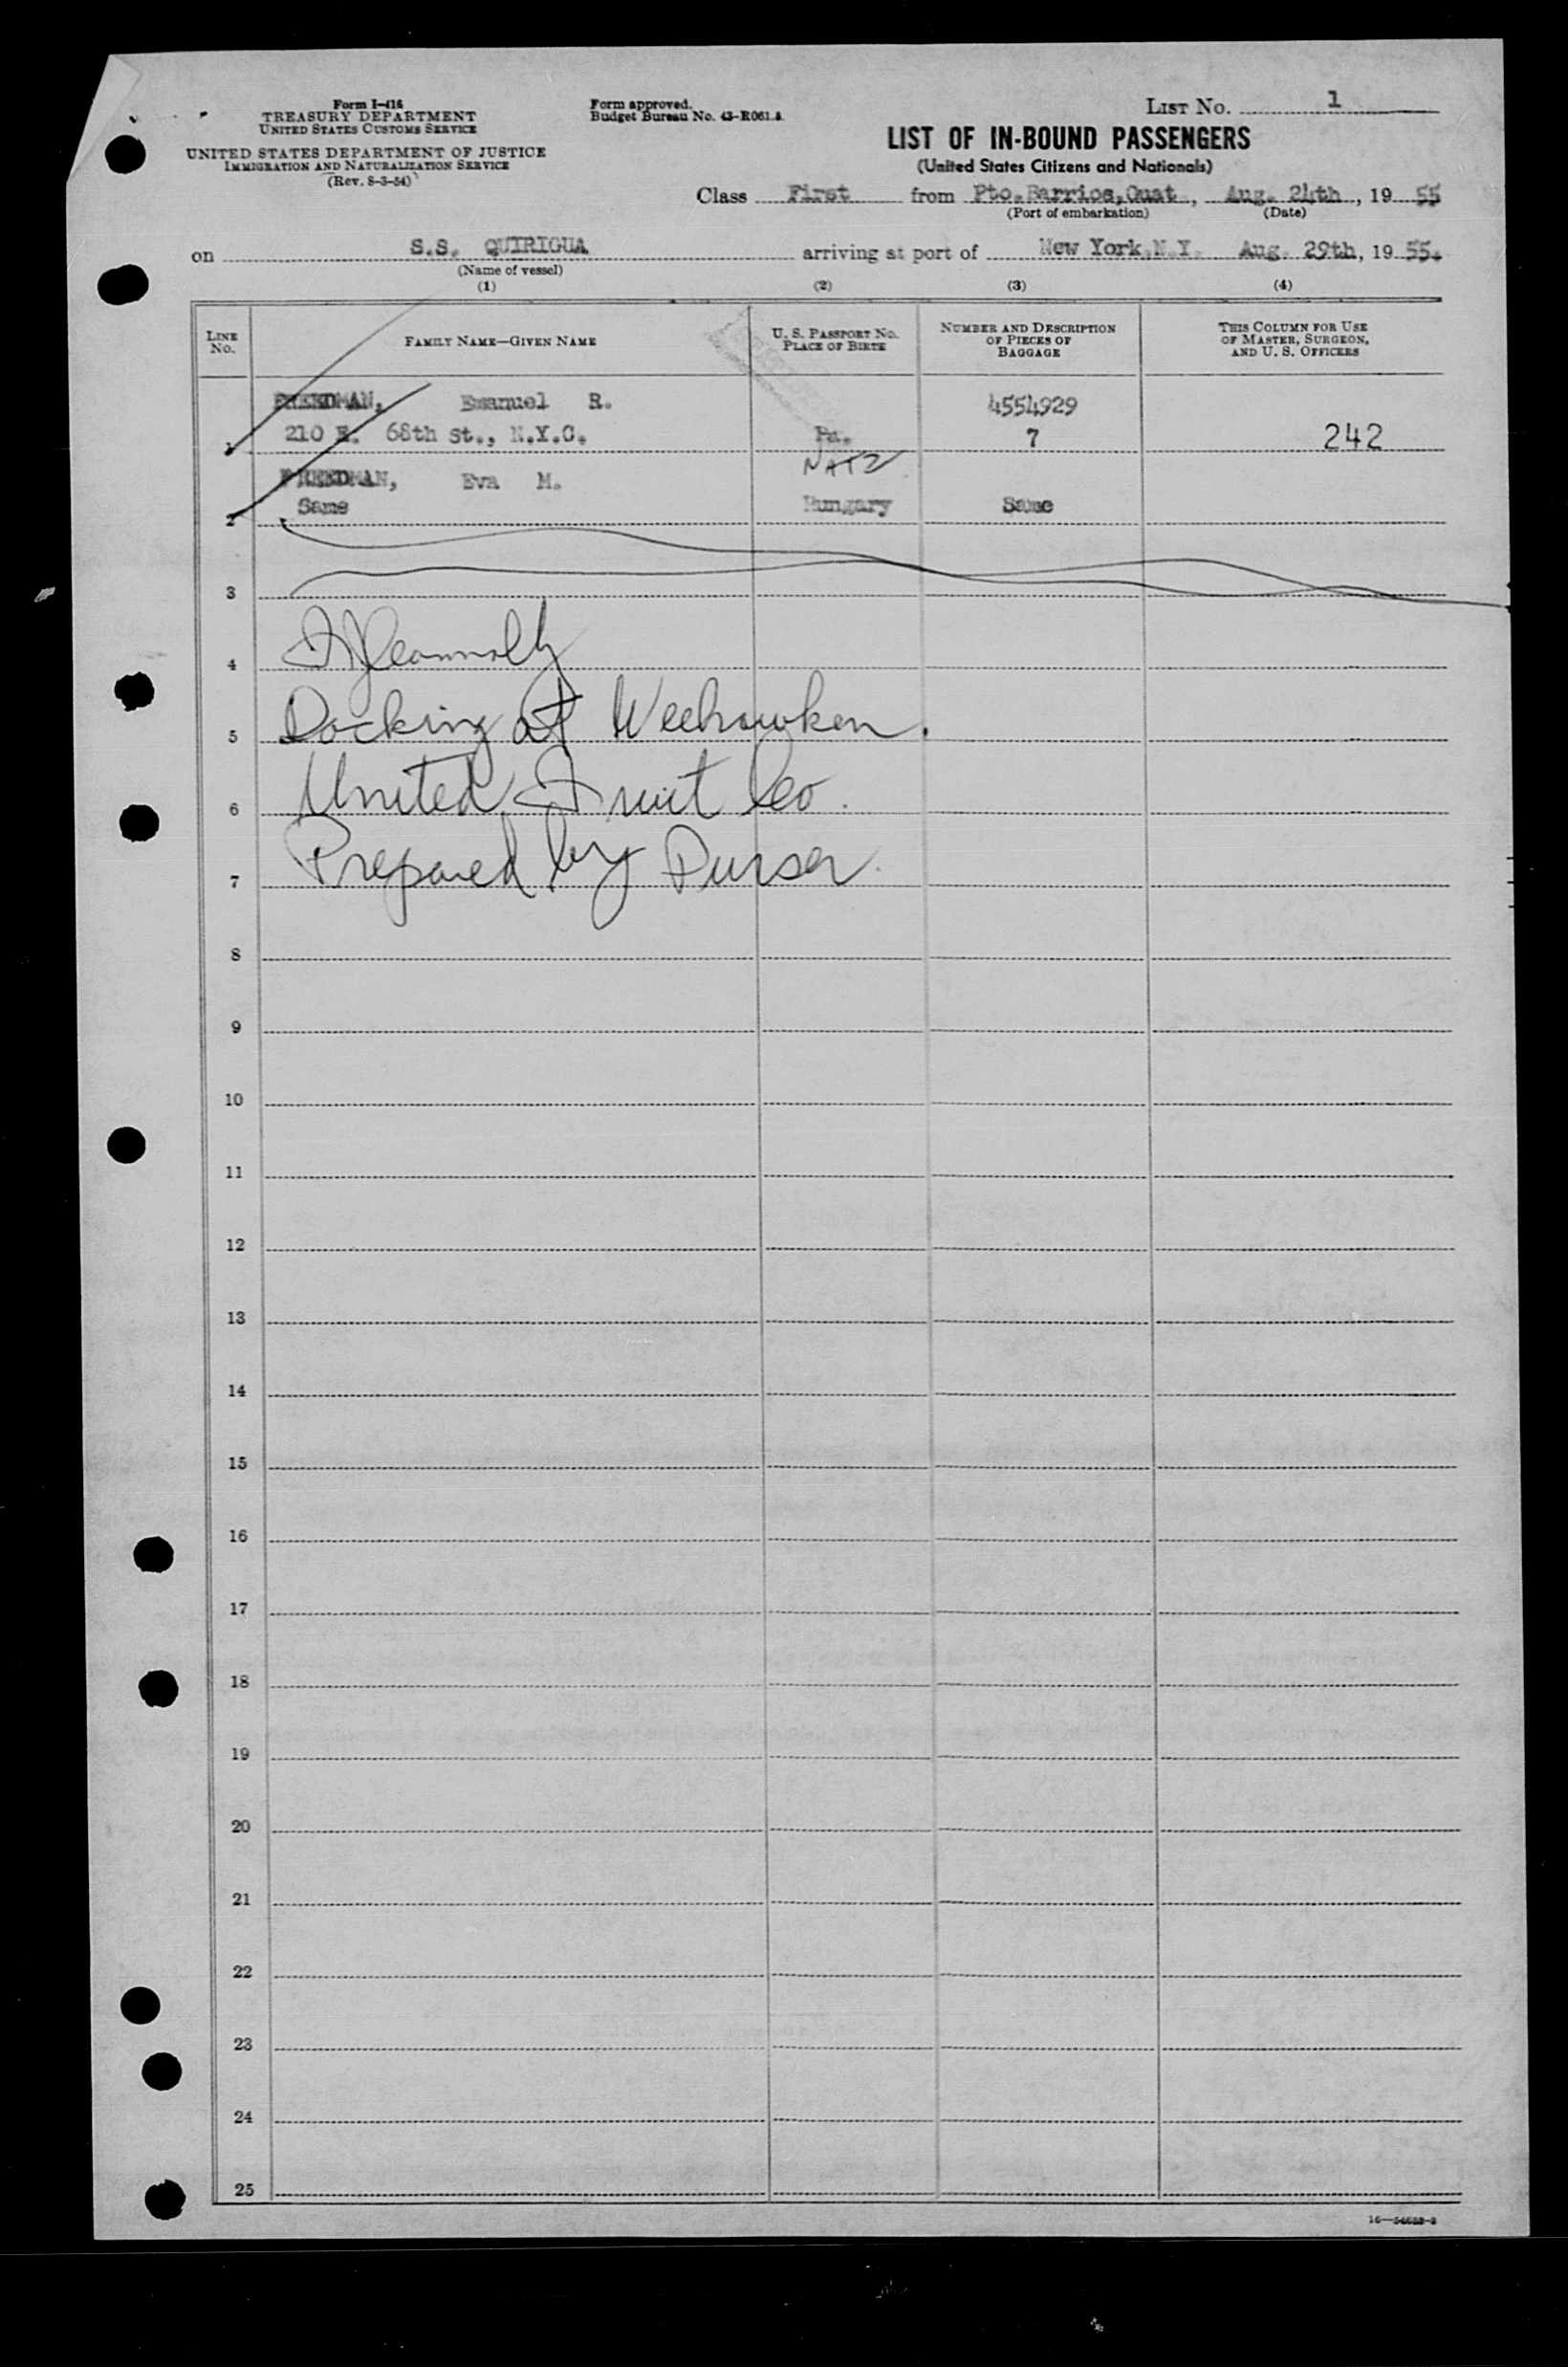 Form I-416
TREASURY DEPARTMENT
UNITED STATES CUSTOMS SERVICE
UNITED STATES DEPARTMENT OF JUSTICE
IMMIGRATION AND NATURALIZATION SERVICE
(Rev. 8-3-54)
Form approved.
Budget Bureau No. 43-R061.
LIST NO. 1
LIST OF IN-BOUND PASSENGERS
(United States Citizens and Nationals)
Class First from Pto.Barrios,Guat., Aug. 24th, 19 55
(Port of embarkation) (Date)
on S.S. QUIRIGUA arriving at port of New York,N.Y. Aug. 29th, 19 55.
(Name of vessel)
(1) (2) (3) (4)
LINE NO. FAMILY NAME—GIVEN NAME U. S. PASSPORT NO. PLACE OF BIRTH NUMBER AND DESCRIPTION OF PIECES OF BAGGAGE THIS COLUMN FOR USE OF MASTER, SURGEON, AND U. S. OFFICERS
FREEDMAN, Emanuel R. 4554929
1 210 E. 68th st., N.Y.C. Pa. 7 242
FREEDMAN, Eva M. NATZ
2 Same Hungary Same
3
4 Connolly
5 Docking at Weehawken.
6 United Fruit Co.
7 Prepared by Purser.
8
9
10
11
12
13
14
15
16
17
18
19
20
21
22
23
24
25